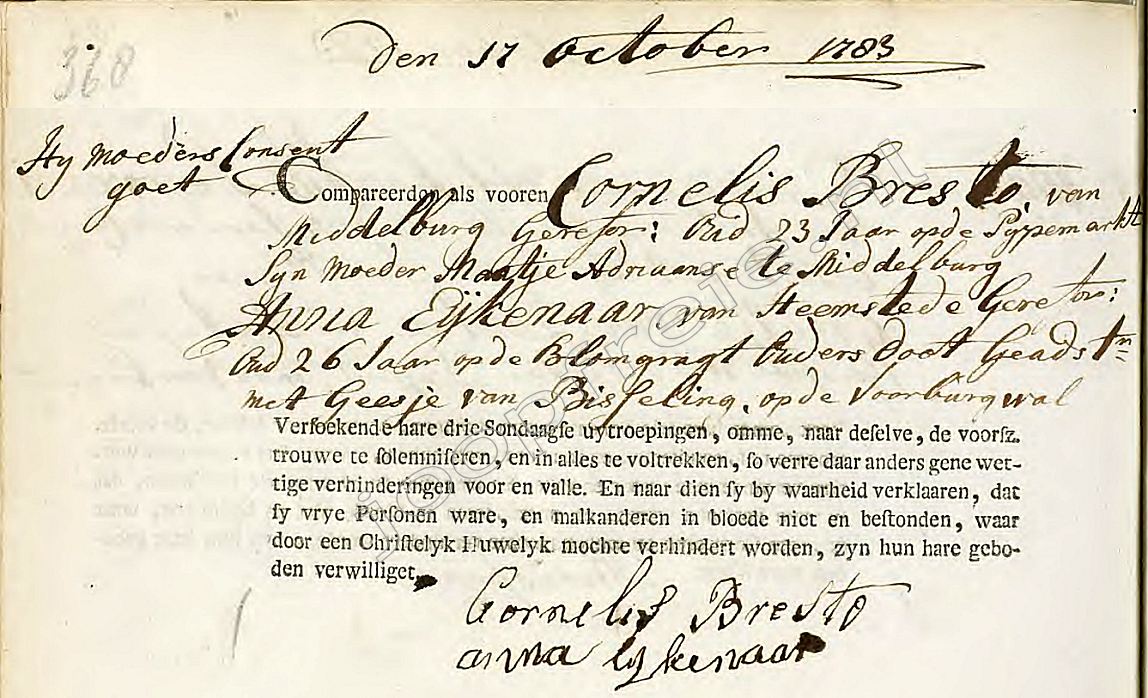 Den 17 October 1783
368
Hy moeders Consent
goet
Compareerden als vooren Cornelis Bresto, van
Middelburg Gerefor: Oud 23 Jaar op de Pypemarkt
Syn Moeder Maatje Adriaanse te Middelburg
Anna Eijkenaar van Heemstede Gerefor:
Oud 26 Jaar op de Blomgragt Ouders doot Geadstn
met Geesje van Bisseling, op de Voorburgwal
Versoekende hare drie Sondaagse uytroepingen, omme, naar deselve, de voorsz.
trouwe te solemniseren, en in alles te voltrekken, so verre daar anders gene wet-
tige verhinderingen voor en valle. En naar dien sy by waarheid verklaaren, dat
sy vrye Personen ware, en malkanderen in bloede niet en bestonden, waar
door een Christelyk Huwelyk mochte verhindert worden, zyn hun hare gebo-
den verwilliget.
Cornelis Bresto
anna Eykenaar
joopreie.nl